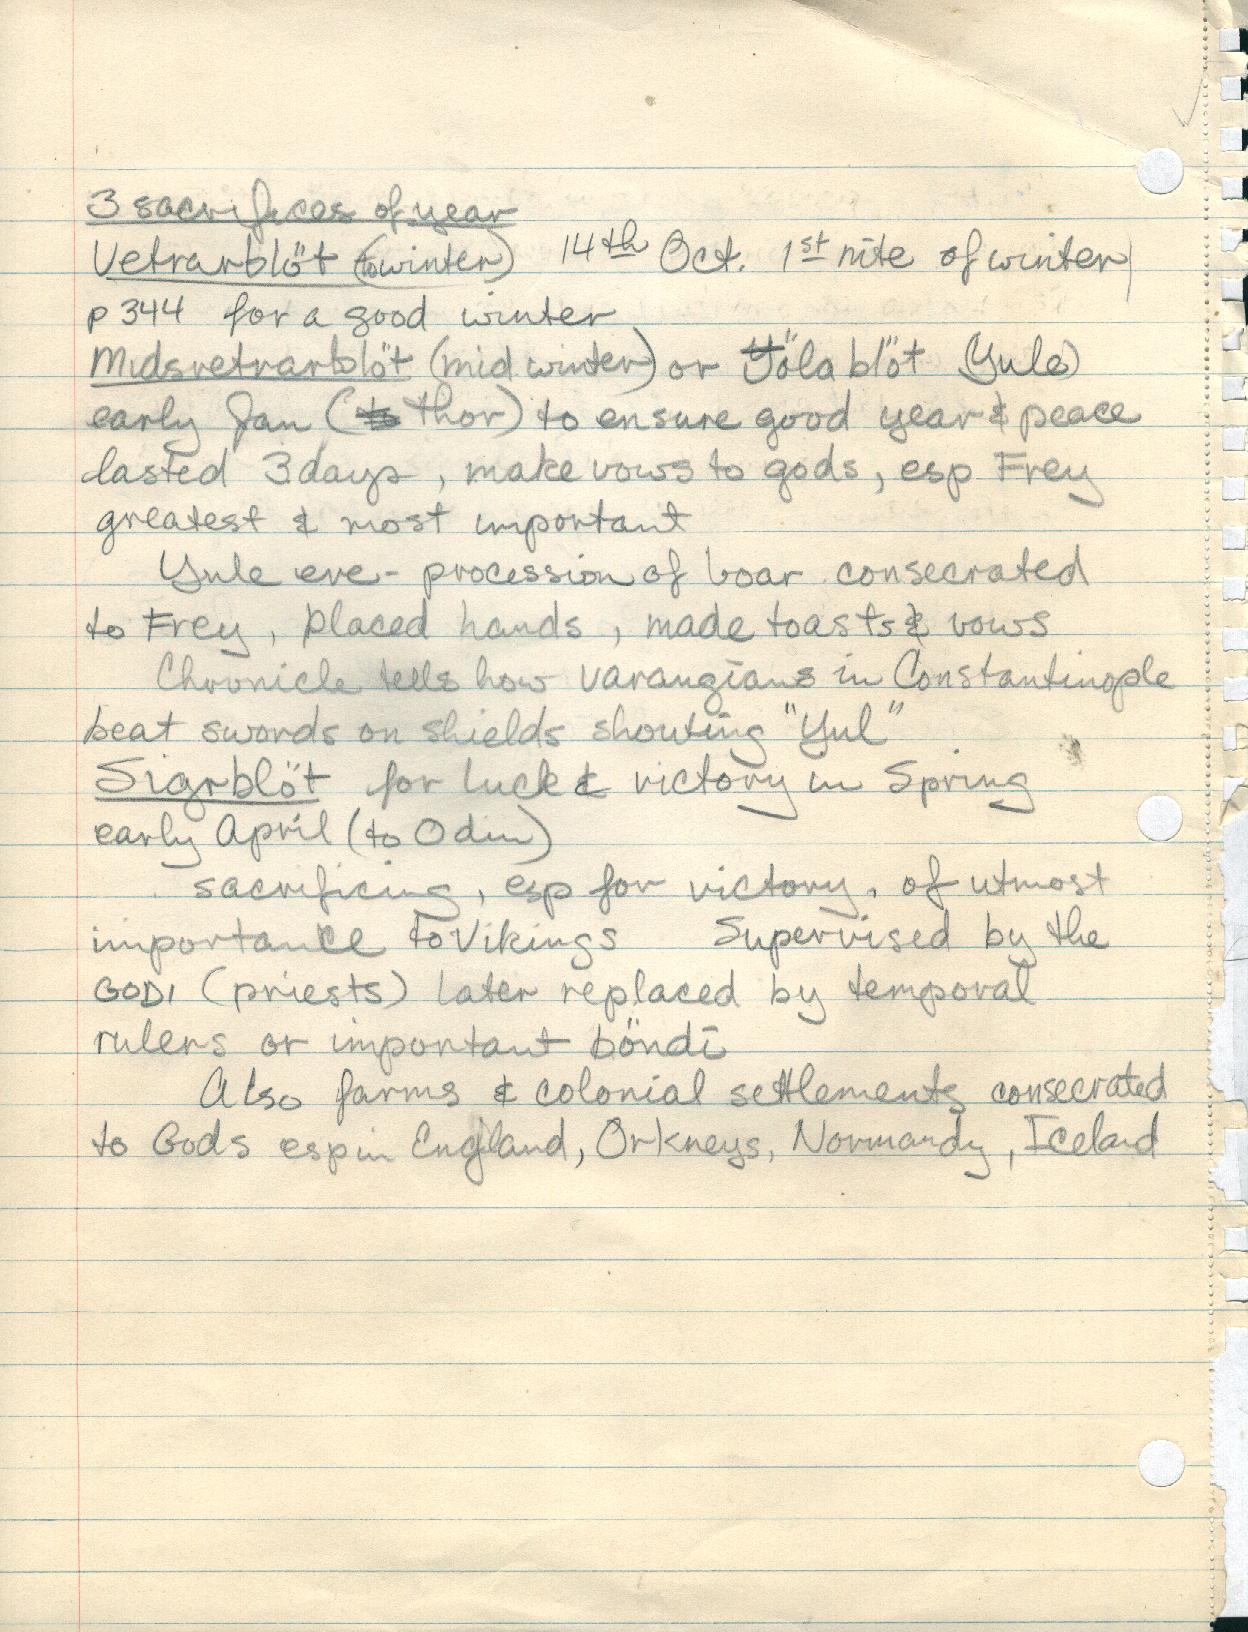 3 sacrifices of year
Vetrarblöt (to winter) 14th Oct. 1st nite of winter
p 344 for a good winter
Midsvetrarblöt (mid winter) or Jölablöt (Yule)
early Jan (to Thor) to ensure good year & peace
lasted 3 days, make vows to gods, esp Frey
greatest & most important
Yule eve - procession of boar consecrated
to Frey, placed hands, made toasts & vows
Chronicle tells how varangians in Constantinople
beat swords on shields shouting "Yul"
Sigrblöt for luck & victory in Spring
early April (to Odin)
sacrificing, esp for victory, of utmost
importance to Vikings Supervised by the
GODI (priests) later replaced by temporal
rulers or important böndi
Also farms & colonial settlements consecrated
to Gods esp in England, Orkneys, Normandy, Iceland